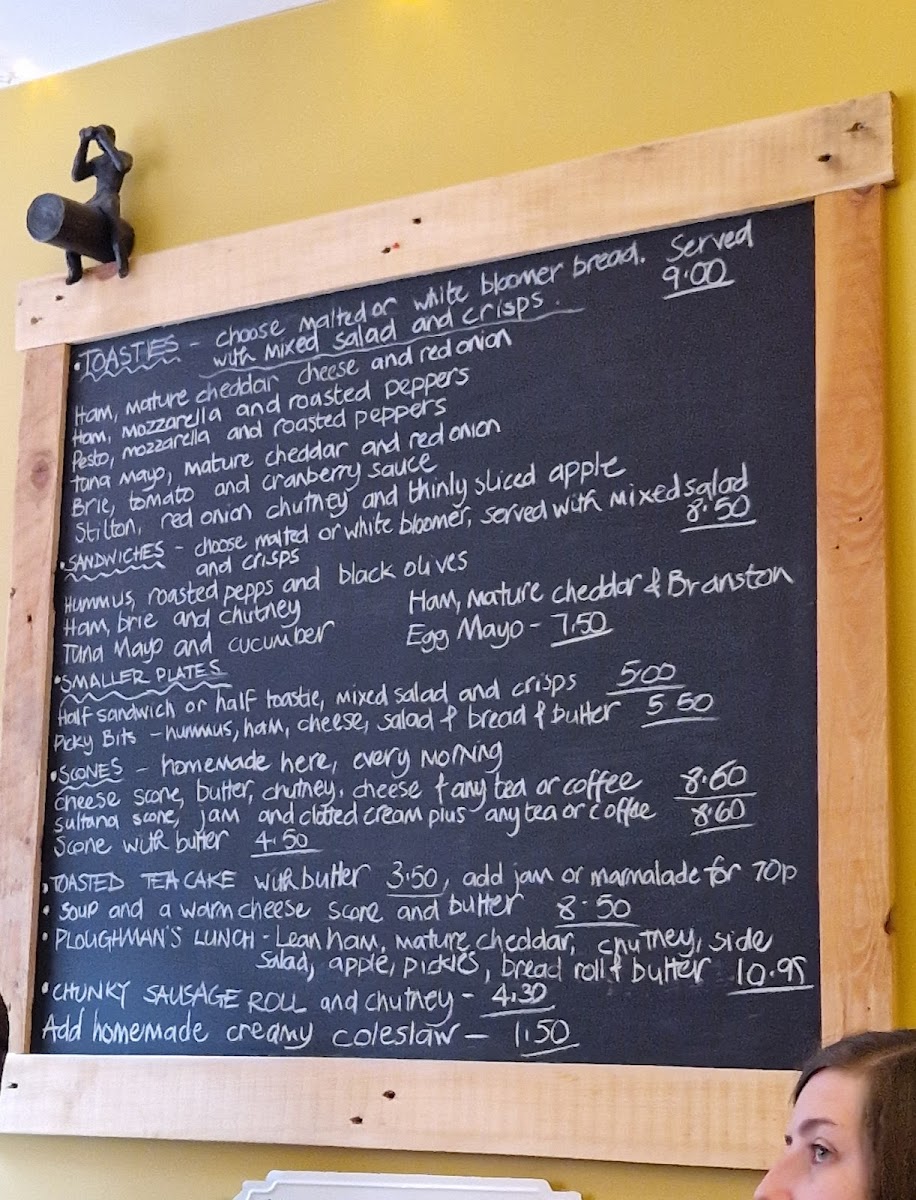 • TOASTIES - choose malted or white bloomer bread. Served
with mixed salad and crisps. 9.00
Ham, mature cheddar cheese and red onion
Ham, mozzarella and roasted peppers
Pesto, mozzarella and roasted peppers
tuna mayo, mature cheddar and red onion
Brie, tomato and cranberry sauce
Stilton, red onion chutney and thinly sliced apple
• SANDWICHES - choose malted or white bloomer, served with mixed salad
and crisps 8.50
Hummus, roasted pepps and black olives
Ham, brie and chutney Ham, mature cheddar & Branston
Tuna Mayo and cucumber Egg Mayo - 7.50
• SMALLER PLATES
Half sandwich or half toastie, mixed salad and crisps 5.00
Picky Bits - hummus, ham, cheese, salad & bread & butter 5.50
• SCONES - homemade here, every morning
cheese scone, butter, chutney, cheese & any tea or coffee 8.60
Sultana scone, jam and clotted cream plus any tea or coffee 8.60
Scone with butter 4.50
• TOASTED TEACAKE with butter 3.50, add jam or marmalade for 70p
• Soup and a warm cheese scone and butter 8.50
• PLOUGHMAN'S LUNCH - Lean ham, mature cheddar, chutney, side
salad, apple, pickles, bread roll & butter 10.95
• CHUNKY SAUSAGE ROLL and chutney - 4.30
Add homemade creamy coleslaw - 1.50